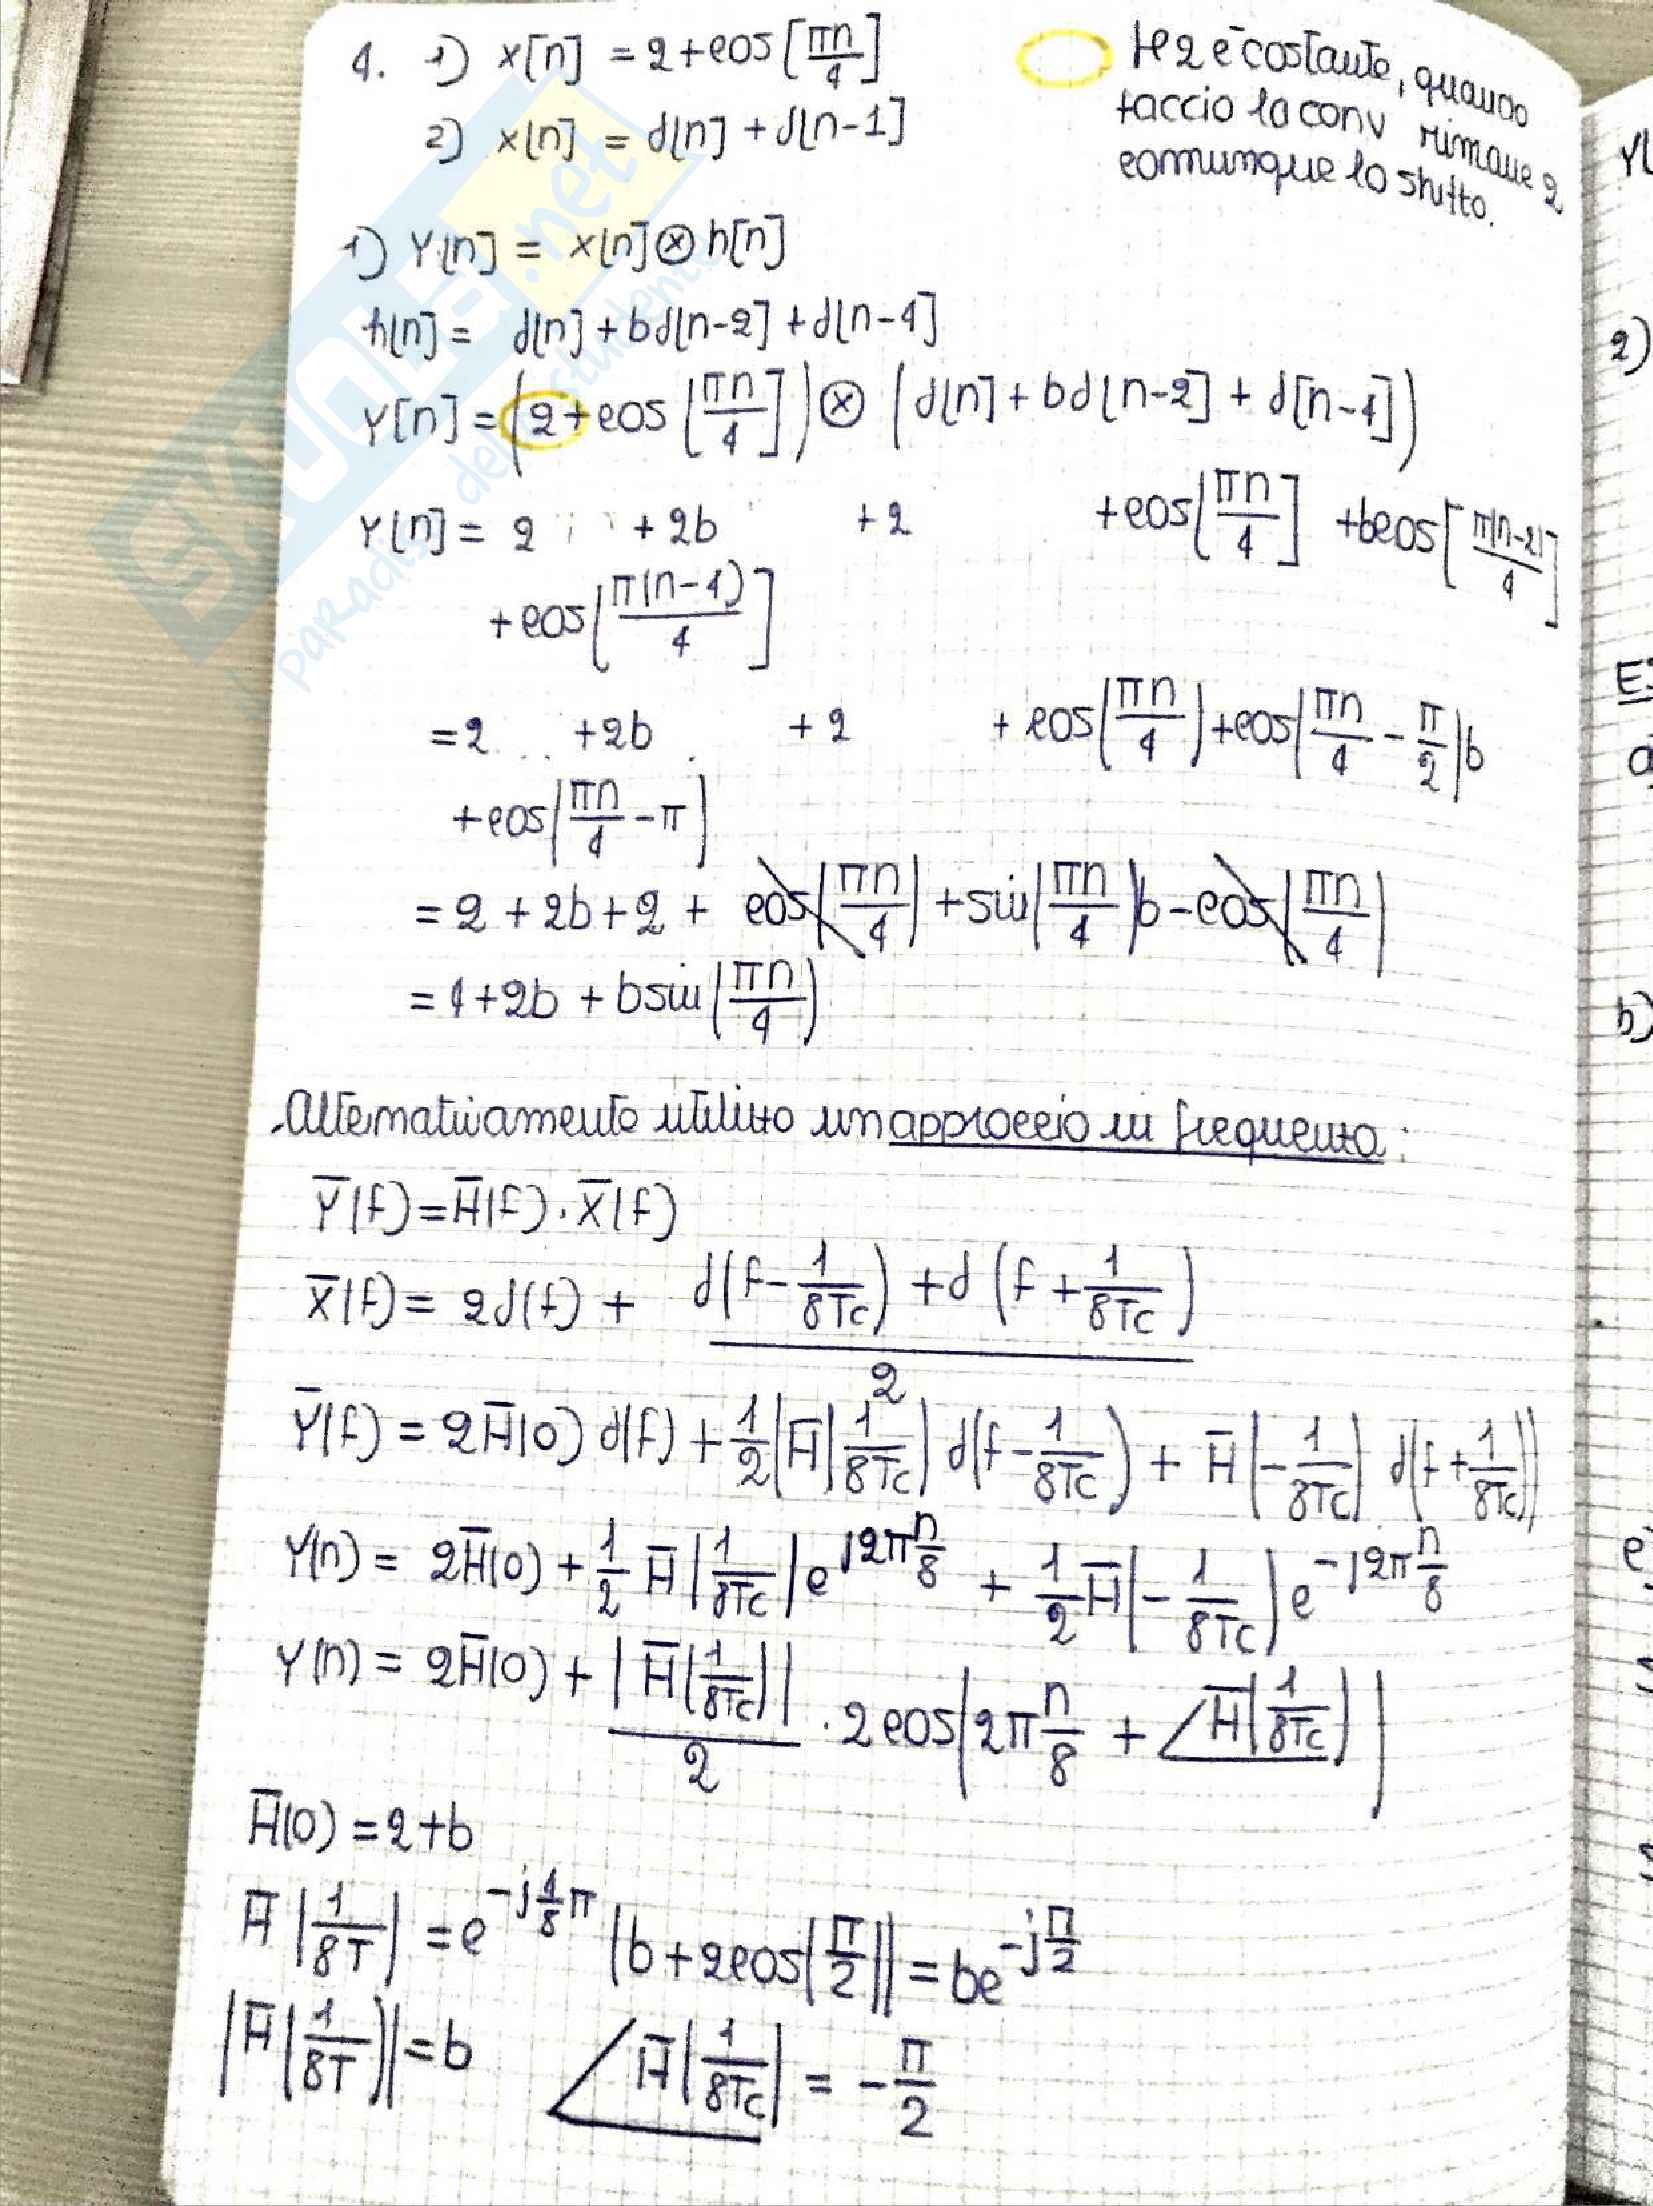 4. 1) x[n] = 2 + cos[πn/4]
2) x[n] = d[n] + d[n-1]
Il 2 è costante, quando
faccio la conv rimane 2
comunque lo shifto.
1) Y[n] = x[n] ⊗ h[n]
h[n] = d[n] + bd[n-2] + d[n-4]
Y[n] = (2 + cos[πn/4]) ⊗ (d[n] + bd[n-2] + d[n-4])
Y[n] = 2 + 2b + 2 + cos[πn/4] + bcos[π(n-2)/4]
+ cos[π(n-4)/4]
= 2 + 2b + 2 + cos(πn/4) + cos(πn/4 - π/2)b
+ cos(πn/4 - π)
= 2 + 2b + 2 + cos(πn/4) + sin(πn/4)b - cos(πn/4)
= 4 + 2b + bsin(πn/4)
Alternativamente utilizzo un approccio in frequenza:
Y̅(f) = H̅(f) · X̅(f)
X̅(f) = 2d(f) + (d(f - 1/8Tc) + d(f + 1/8Tc))/2
Y̅(f) = 2H̅(0) d(f) + 1/2(H̅(1/8Tc) d(f - 1/8Tc) + H̅(-1/8Tc) d(f + 1/8Tc))
Y(n) = 2H̅(0) + 1/2 H̅(1/8Tc) e^{j2πn/8} + 1/2 H̅(-1/8Tc) e^{-j2πn/8}
Y(n) = 2H̅(0) + |H̅(1/8Tc)|/2 · 2cos(2πn/8 + ∠H̅(1/8Tc))
H̅(0) = 2+b
H̅(1/8T) = e^{-j4/8π} (b + 2cos(π/2)) = be^{-jπ/2}
|H̅(1/8T)| = b ∠H̅(1/8Tc) = -π/2
2)
b)
SKUOLA.net
il paradiso dello studente